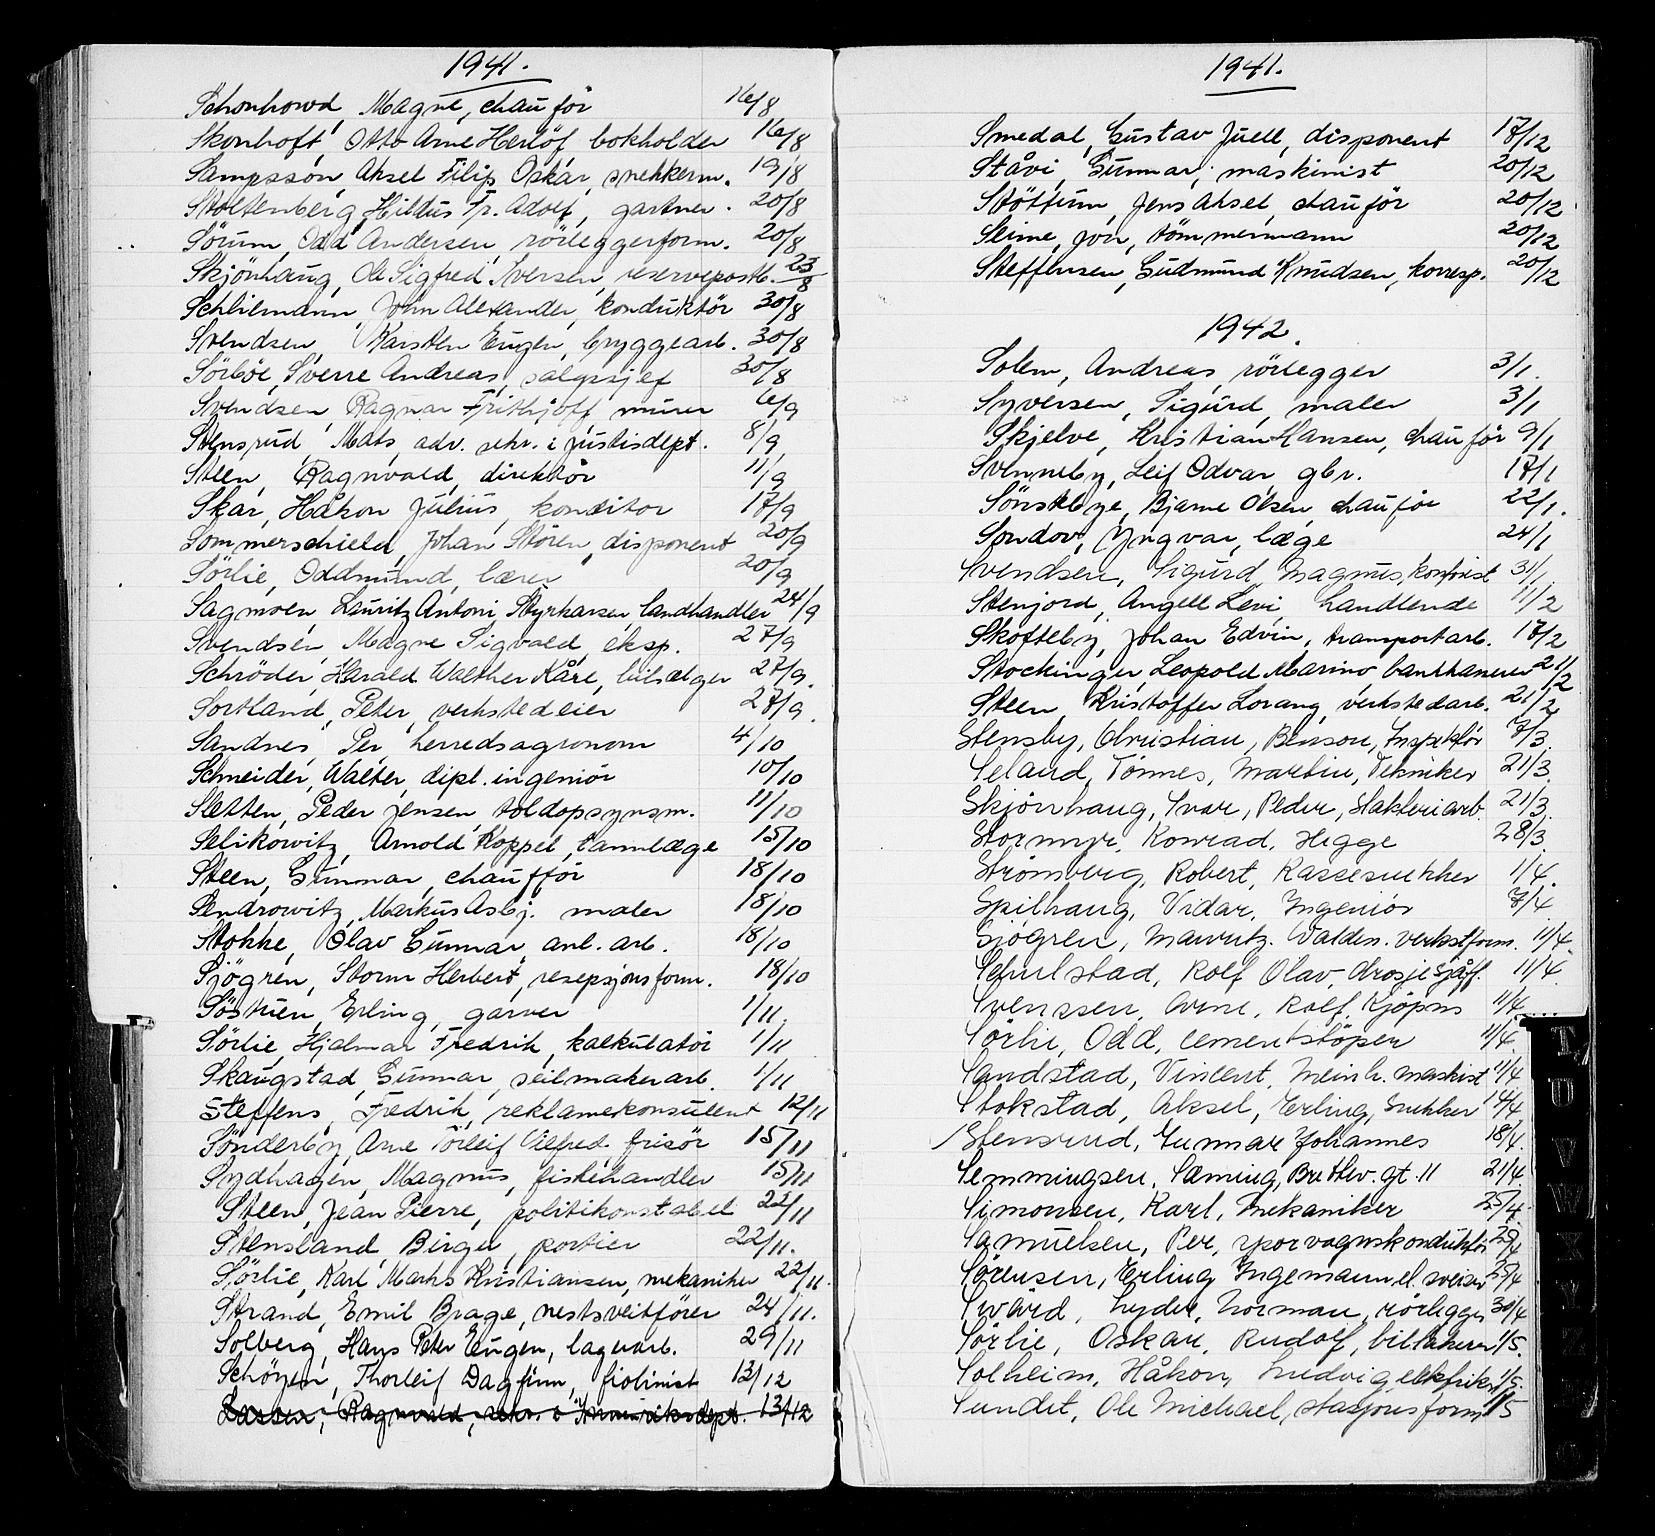 1941.
Schonhowd, Magne, chauför 16/8
Skonhoft, Otto Arne Herlöf bokholder 16/8
Sampsson, Aksel Filip Oskar, snekkerm. 19/8
Stoltenberg, Hildus Fr. Adolf, gartner. 20/8
Sörum, Odd Andersen, rörleggerform. 20/8
Skjönhaug, Ole Sigfred Iversen, reservepostb. 23/8
Schliemann, John Alexander, konduktör 30/8
Svendsen, Karsten Eugen, bryggearb. 30/8
Sörböe, Sverre Andreas, salgssjef 30/8
Svendsen, Ragnar Frithjoff, murer 6/9
Stensrud, Mats, adv. sekr. i justisdept. 8/9
Steen, Ragnvald, direktör 11/9
Skar, Håkon Julius, konditor 17/9
Sommerschield, Johan Stören, disponent 20/9
Sörlie, Oddmund, lærer 20/9
Sagmoen, Lauritz Antoni Styrkarsen, landhandler 24/9
Svendsen, Magne Sigvald, eksp. 27/9
Schröder, Harald Walther Kåre, bilselger 27/9.
Sortland, Peter, verkstedeier 27/9.
Sandnes, Per, herredsagronom 4/10
Schneider, Walter, dipl. ingeniör 10/10
Sletten, Peder Jensen, toldopsynsm. 11/10
Selikowitz, Arnold Koppel, tannlæge 15/10
Steen, Gunnar, chaufför 18/10
Sendrowitz, Markus Asbj. maler 18/10
Stokke, Olav Gunnar, anl. arb. 18/10
Sjögren, Storm Herbert, resepsjonsform. 18/10
Söstuen, Erling, garver 1/11.
Sörlie, Hjalmar Fredrik, kalkulatör 1/11
Skaugstad, Gunnar, seilmakerarb. 1/11
Steffens, Fredrik, reklamekonsulent 12/11
Sönderby, Arne Torleif Vilfred, frisör 15/11
Sydhagen, Magnus, fiskehandler 15/11
Steen, Jean Pierre, politikonstabel 22/11
Stensland, Birger, portier 22/11.
Sörlie, Karl Marks Kristiansen, mekaniker 22/11.
Strand, Emil Brage, restsveitförer 24/11.
Solberg, Hans Peter Eugen, lagerarb. 29/11
Schöyen, Thorleif Dagfinn, fiolinist 13/12
Larsen, Ragnvald, sekr. i Innenriksdept. 13/12
1941.
Smedal, Gustav Juell, disponent 17/12
Ståvi, Gunnar, maskinist 20/12
Stötfum, Jens Aksel, chauför 20/12
Seime, Jon, tömmermann 20/12
Steffensen, Gudmund Knudsen, korresp. 20/12
1942.
Solem, Andreas rörlegger 3/1.
Syversen, Sigurd, maler 3/1
Skjelve, Kristian Hansen, chauför 9/1
Svenneby, Leif Odvar, gbr. 17/1
Sönsteby, Bjarne Olsen, chauför 22/1.
Sondov, Yngvar, læge 24/1
Svendsen, Sigurd Magnus, kontorist 31/1
Stenjord, Angell Levi, handlende 11/2
Skofteby, Johan Edvin, transportarb. 17/2
Stockinger, Leopold Marino bankkaserer 21/2
Steen, Kristoffer Lorang, verkstedarb. 21/2
Stensby, Christian, Benson, Inspektör 7/3.
Seland, Tönnes, Martin, Tekniker 21/3.
Skjönhaug, Ivar, Peder, Slakteriarb. 21/3.
Stormyr, Konrad, Hegge 28/3.
Strömberg, Robert, Kassesnekker 1/4.
Spilhaug, Vidar, Ingeniör 7/4.
Sjögren, Mauritz. Valdm. verkstform. 11/4.
Schulstad, Rolf Olav, drosjesjåf. 11/4.
Svenssen, Arne, Rolf, Kjöpm 11/4
Sörlie, Odd, cementstöper 11/4.
Sandstad, Vincent, Meinh. maskist 11/4
Stokstad, Aksel, Erling, Snekker 14/4
Stensrud, Gunnar Johannes 18/4.
Semmingsen, Sæming, Brettev. gt. 11 21/4.
Simonsen, Karl, Mekaniker 25/4.
Samuelsen, Per, sporvognskonduktör 25/4
Sörensen, Erling Ingemann, el. sveiser 25/4
Swärd, Lyder, Norman, rörlegger 30/4
Sörlie, Oskar, Rudolf, billakerer 1/5.
Solheim, Håkon, Ludvig, elektriker 1/5.
Sundet, Ole Michael, stasjonsform. 1/5
T.
U
V
W
X
Y
Z
Æ
Ö